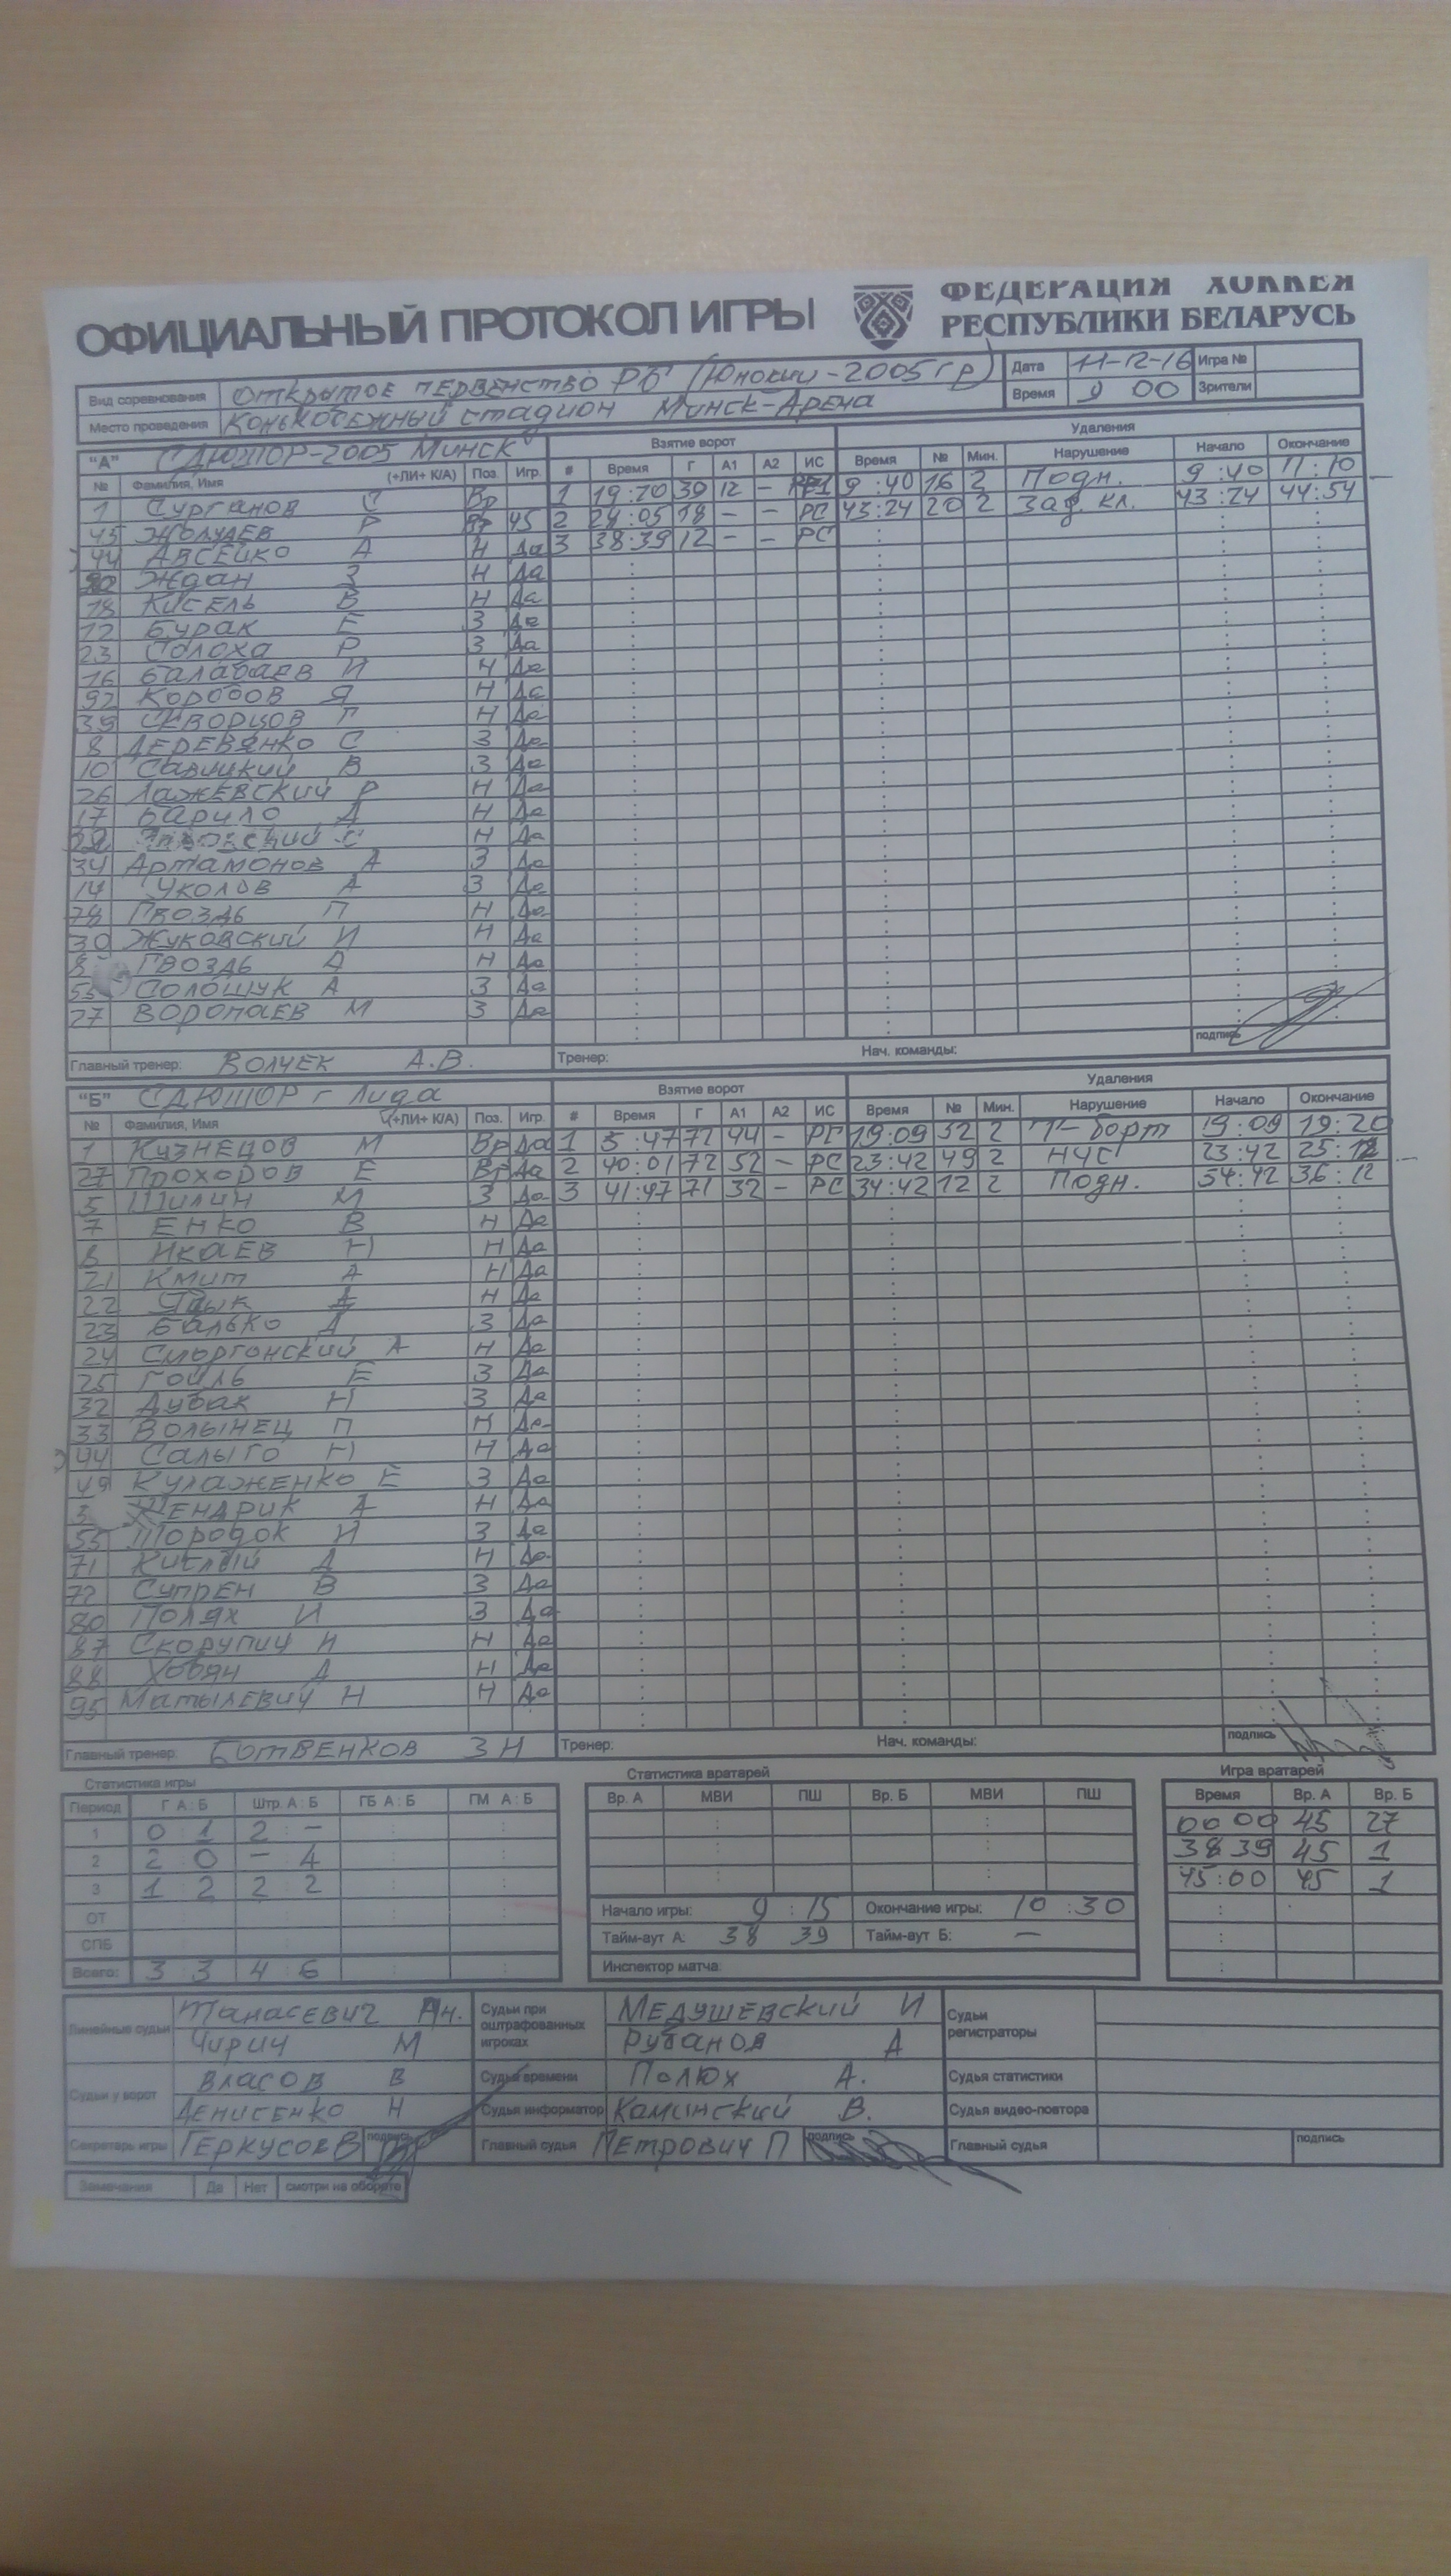 ОФИЦИАЛЬНЫЙ ПРОТОКОЛ ИГРЫ
ФЕДЕРАЦИЯ ХОККЕЯ
РЕСПУБЛИКИ БЕЛАРУСЬ
Вид соревнования Открытое первенство РБ (Юноши-2005 гр) Дата 11-12-16 Игра №
Место проведения Конькобежный стадион Минск-Арена Время 9 00 Зрители
"А" СДЮШОР-2005 Минск Взятие ворот Удаления
№ Фамилия, Имя (+ЛИ+ К/А) Поз. Игр. # Время Г А1 А2 ИС Время № Мин. Нарушение Начало Окончание
1 Сурганов С Вр 1 19:20 39 12 - 9:40 16 2 Подн. 9:40 11:10
45 Жолудев Р Вр 45 2 24:05 18 - - РС 43:24 20 2 Зад. кл. 43:24 44:54
44 Авсейко А Н Да 3 38:39 12 - - РС
Ждан З Н Да
18 Кисель В Н Да
12 Бурак Е З Да
23 Солоха Р З Да
16 Балабаев И Н Да
92 Коробов Я Н Да
39 Скворцов Г Н Да
8 Деревянко С З Да
10 Савицкий В З Да
26 Лажевский Р Н Да
17 Барило Д Н Да
С Н Да
34 Артамонов А З Да
14 Уколов А З Да
78 Гвоздь П Н Да
30 Жуковский И Н Да
8 Гвоздь Д Н Да
55 Солошук А З Да
27 Воропаев М З Да
Главный тренер: Волчек А.В. Тренер: Нач. команды: подпись
"Б" СДЮШОР г Лида Взятие ворот Удаления
№ Фамилия, Имя (+ЛИ+ К/А) Поз. Игр. # Время Г А1 А2 ИС Время № Мин. Нарушение Начало Окончание
1 Кузнецов М Вр Да 1 5:47 72 44 - РС 19:09 32 2 Т-борт 19:09 19:20
27 Прохоров Е Вр Да 2 40:01 72 52 - РС 23:42 49 2 НЧС 23:42 25:12
5 Шилин М З Да 3 41:47 71 32 - РС 34:42 12 2 Подн. 54:42 36:12
7 Енко В Н Да
8 Нкаев Н Н Да
21 Кмит А Н Да
22 Д Н Да
23 Балько Д З Да
24 Сморгонский А Н Да
25 Гоиль Е З Да
32 Дубак Н З Да
33 Волынец П Н Да
44 Салыго Н Н Да
49 Кулаженко Е З Да
3 Шендрик А Н Да
55 Шородок И З Да
71 Кислый Д Н Да
72 Супрен В З Да
80 Полях И З Да
87 Скорупич И Н Да
88 Ховяч Д Н Да
95 Матылевич Н Н Да
Главный тренер: Ботвенков З Н Тренер: Нач. команды: подпись
Статистика игры Статистика вратарей Игра вратарей
Период Г А:Б Штр. А:Б ГБ А:Б ГМ А:Б Вр. А МВИ ПШ Вр. Б МВИ ПШ Время Вр. А Вр. Б
1 0:1 2:- 00 00 45 27
2 2:0 - 4 38 39 45 1
3 1:2 2:2 45:00 45 1
ОТ Начало игры: 9:15 Окончание игры: 10:30
СПБ Тайм-аут А: 38 39 Тайм-аут Б: —
Всего: 3:3 4:6 Инспектор матча:
Линейные судьи Танасевич Ан. Судьи при оштрафованных игроках Медушевский И Судьи регистраторы
Чирич М Рубанов А
Судьи у ворот Власов В Судья времени Полюх А. Судья статистики
Денисенко Н Судья информатор Каминский В. Судья видео-повтора
Секретарь игры Геркусов В подпись Главный судья Петрович П подпись Главный судья подпись
Замечания Да Нет смотри на обороте